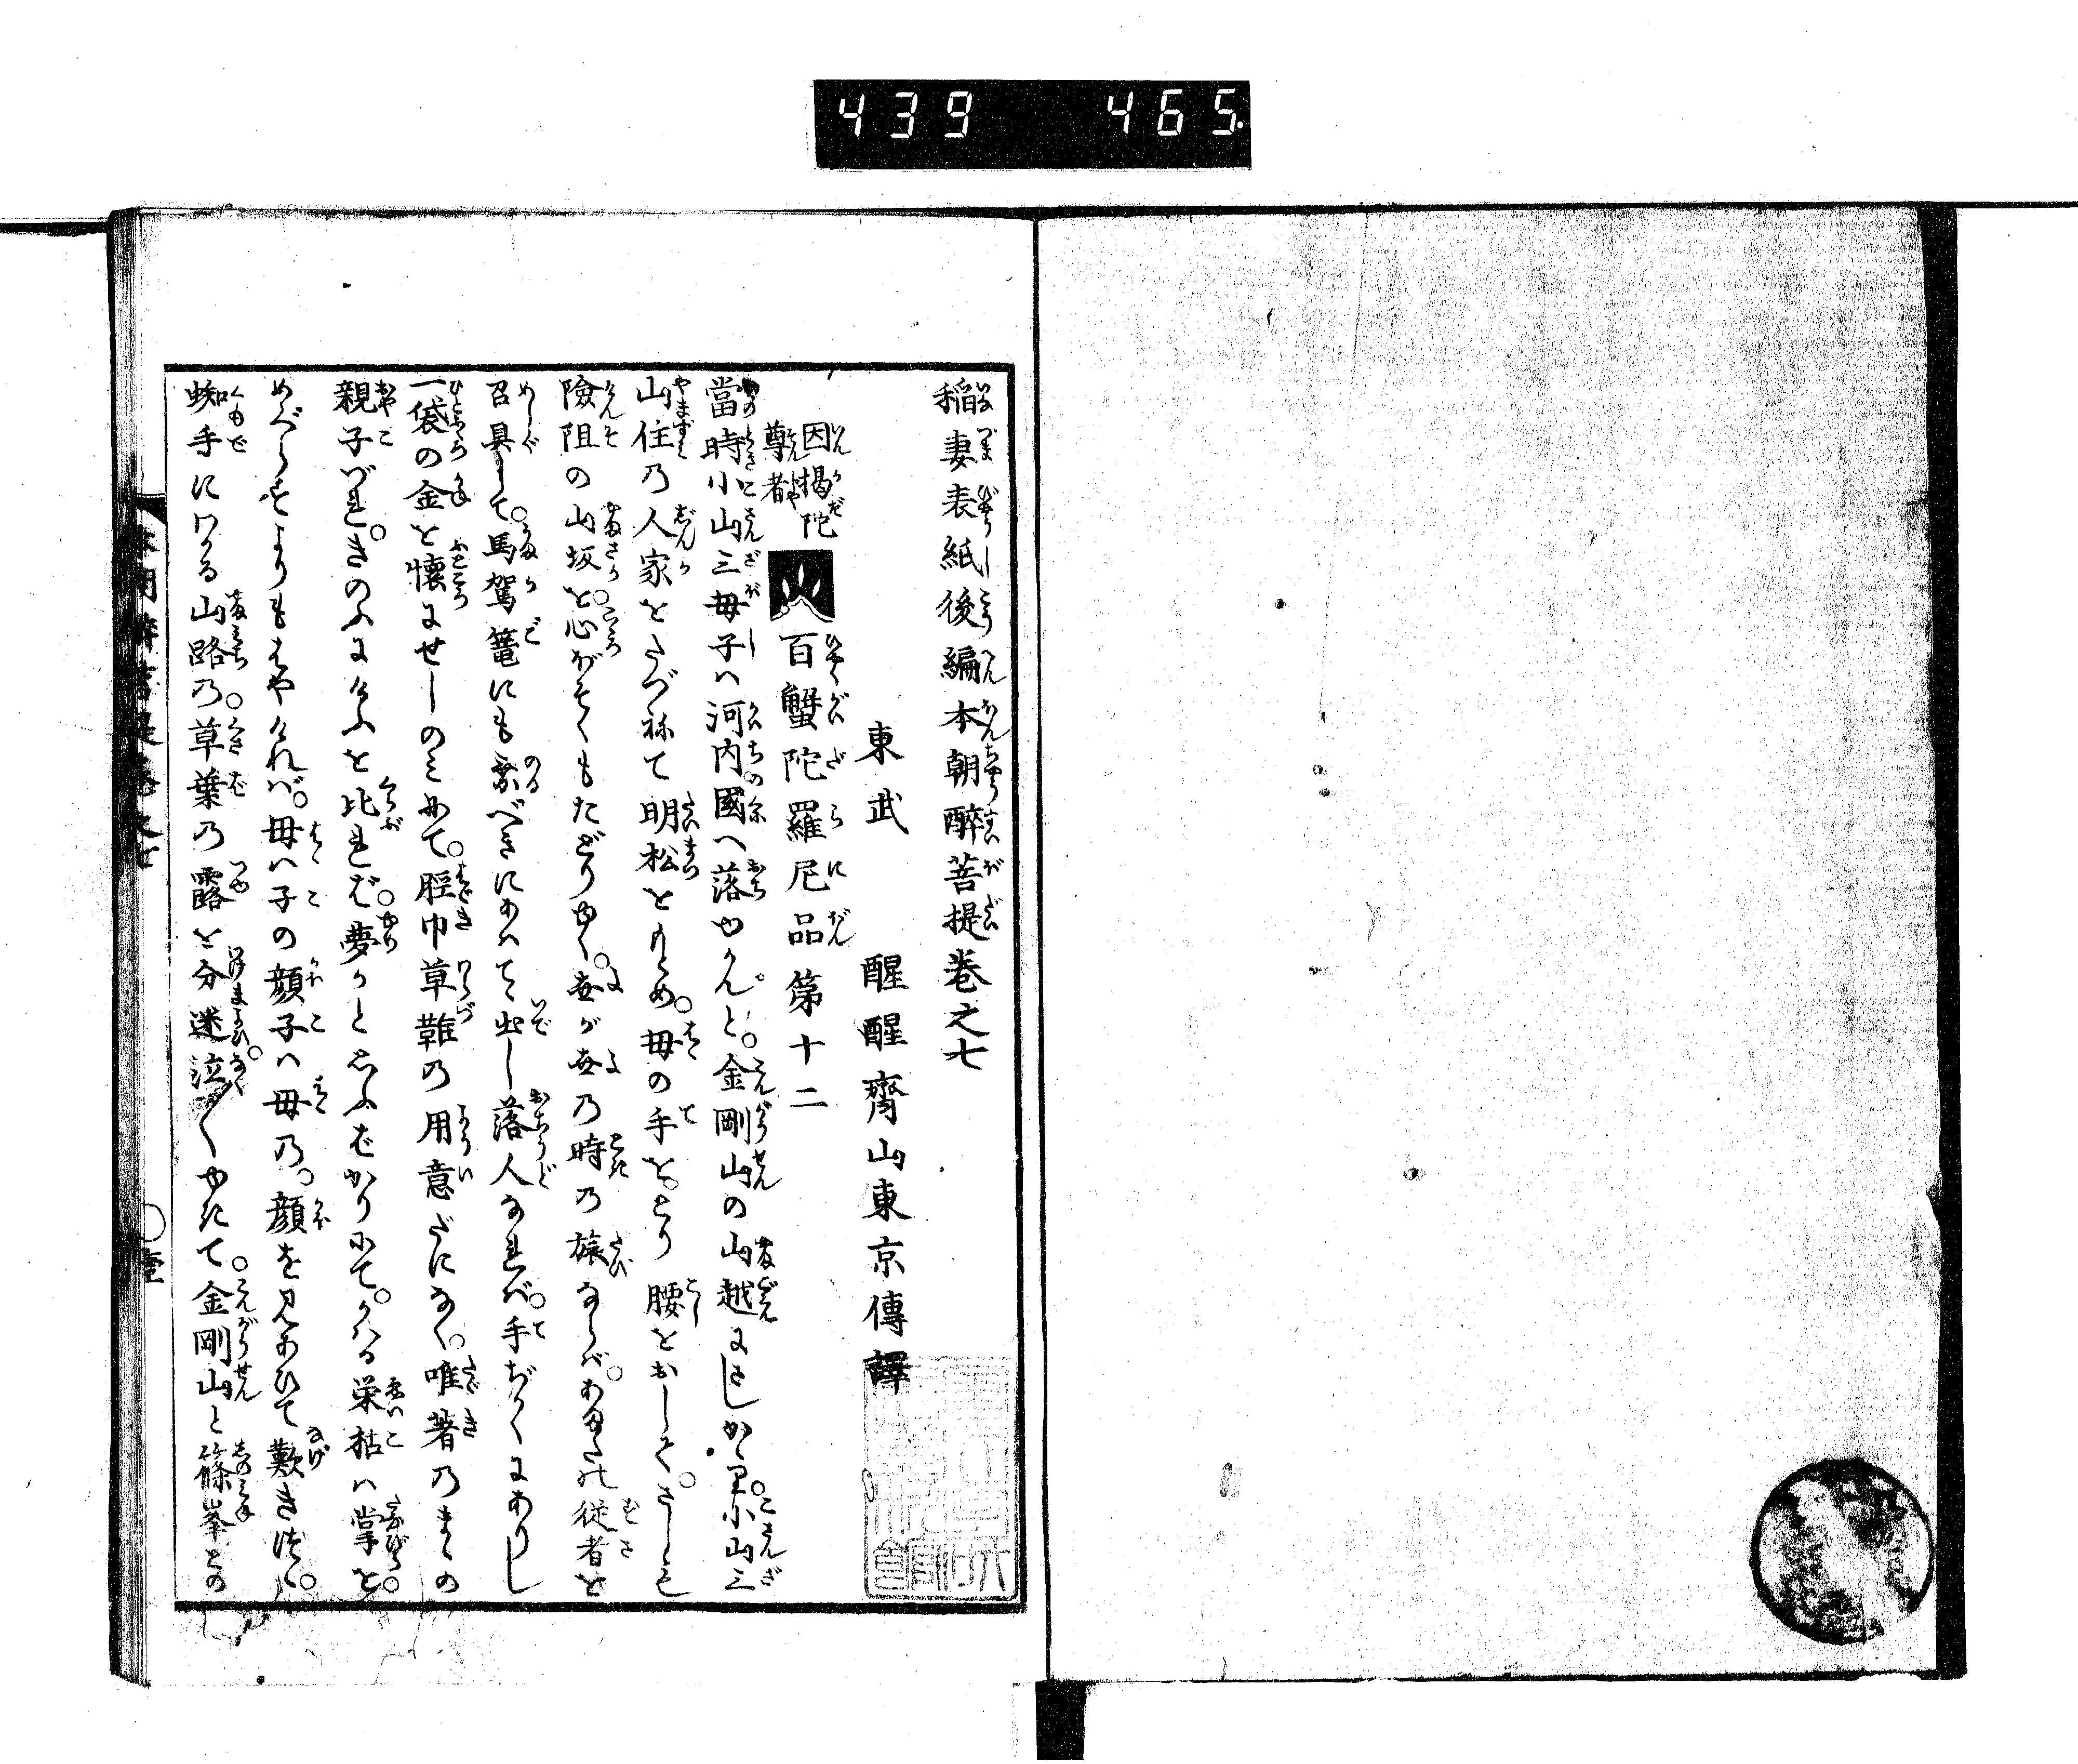 439 465.
稲妻表紙後編本朝酔菩提巻之七
東武 醒醒齋山東京傳譯
因掲陀
尊者
百蟹陀羅尼品第十二
當時小山三母子ハ河内國へ落ゆかんと。金剛山の山越にさしかゝり。小山三
山住乃人家をたづねて明松をもとめ。母の手をとり腰をおして。さしも
險阻の山坂を。心ぼそくもたどりゆく。世が世乃時乃旅ならバ。あまたの従者を
召具して。馬駕篭にも乗べきにあハても出し落人なれバ。手ぢかくにありし
一袋の金を懐にせしのみにて。脛巾草鞋乃用意だになく。唯著乃まゝの
親子づれ。きのふにけふを比れば。夢かとおもふばかりにて。かハる栄枯ハ掌を
めぐらすよりもはやけれバ。母ハ子の顔子ハ母乃。顔を見あひて歎きつゝ。
蜘手にわかる山路乃。草葉乃露を分迷。泣〱ゆきて。金剛山と篠峯との
壹